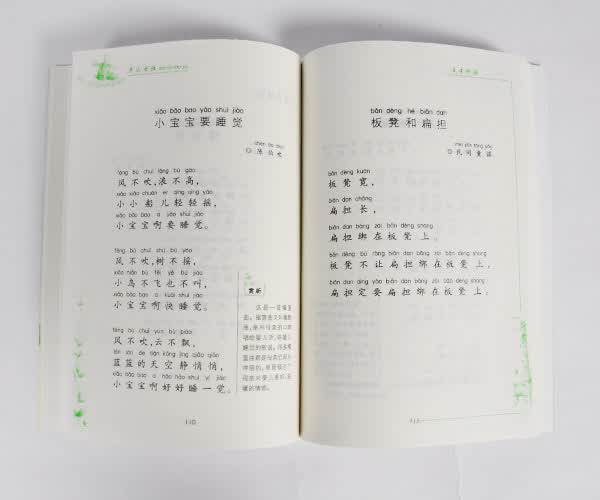 xiǎo bǎo bao yào shuì jiào
小宝宝要睡觉
◎ 陈伯吹
fēng bù chuī làng bù gāo
风不吹,浪不高,
xiǎo xiǎo chuán er qīng qīng yáo
小小船儿轻轻摇,
xiǎo bǎo bao a yào shuì jiào
小宝宝啊要睡觉。
fēng bù chuī shù bù yáo
风不吹,树不摇,
xiǎo niǎo bù fēi yě bù jiào
小鸟不飞也不叫,
xiǎo bǎo bao a kuài shuì jiào
小宝宝啊快睡觉。
fēng bù chuī yún bù piāo
风不吹,云不飘,
lán lán de tiān kōng jìng qiāo qiāo
蓝蓝的天空静悄悄,
xiǎo bǎo bao a hǎo hǎo shuì yí jiào
小宝宝啊好好睡一觉。
赏析
这是一首摇篮
110
bǎn dèng hé biǎn dan
板凳和扁担
mín jiān tóng yáo
◎ 民间童谣
bǎn dèng kuān
板凳宽,
biǎn dan cháng
扁担长,
biǎn dan bǎng zài bǎn dèng shang
扁担绑在板凳上。
bǎn dèng bú ràng biǎn dan bǎng zài bǎn dèng shang
板凳不让扁担绑在板凳上,
biǎn dan dìng yào biǎn dan bǎng zài bǎn dèng shang
扁担定要扁担绑在板凳上。